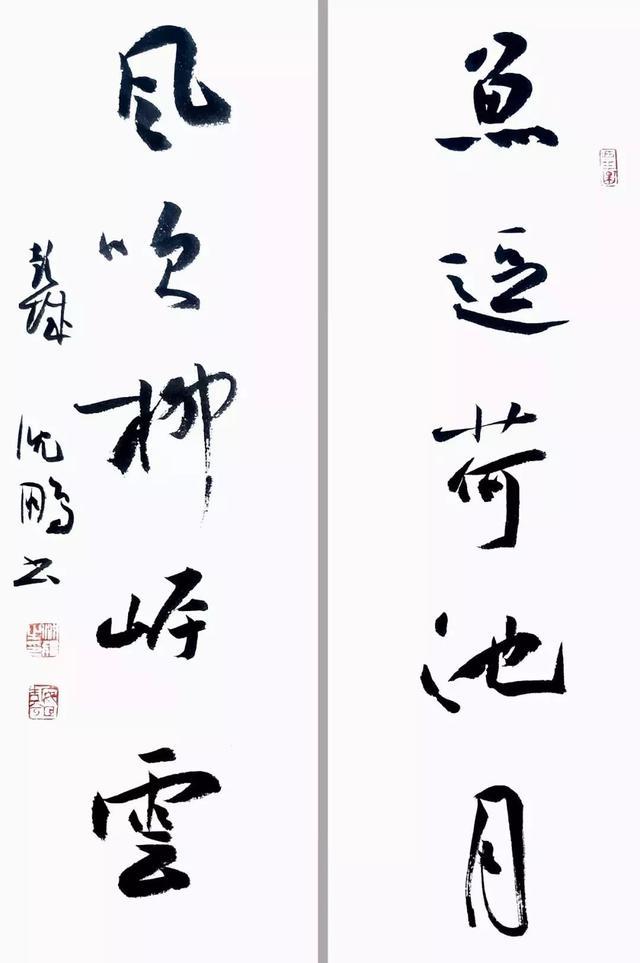 鱼逗荷池月
风吹柳岸雲
沈鹏书